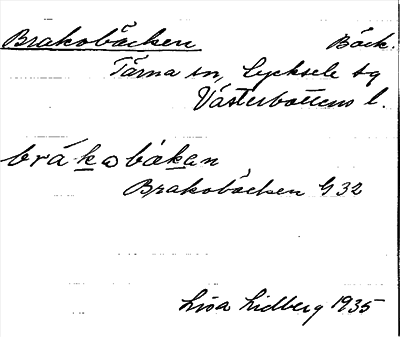 Brakobäcken Bäck.
Tärna sn, Lycksele tg
Västerbottens l.
brákωbäkan
Brakobäcken G 32
Lisa Lidberg 1935